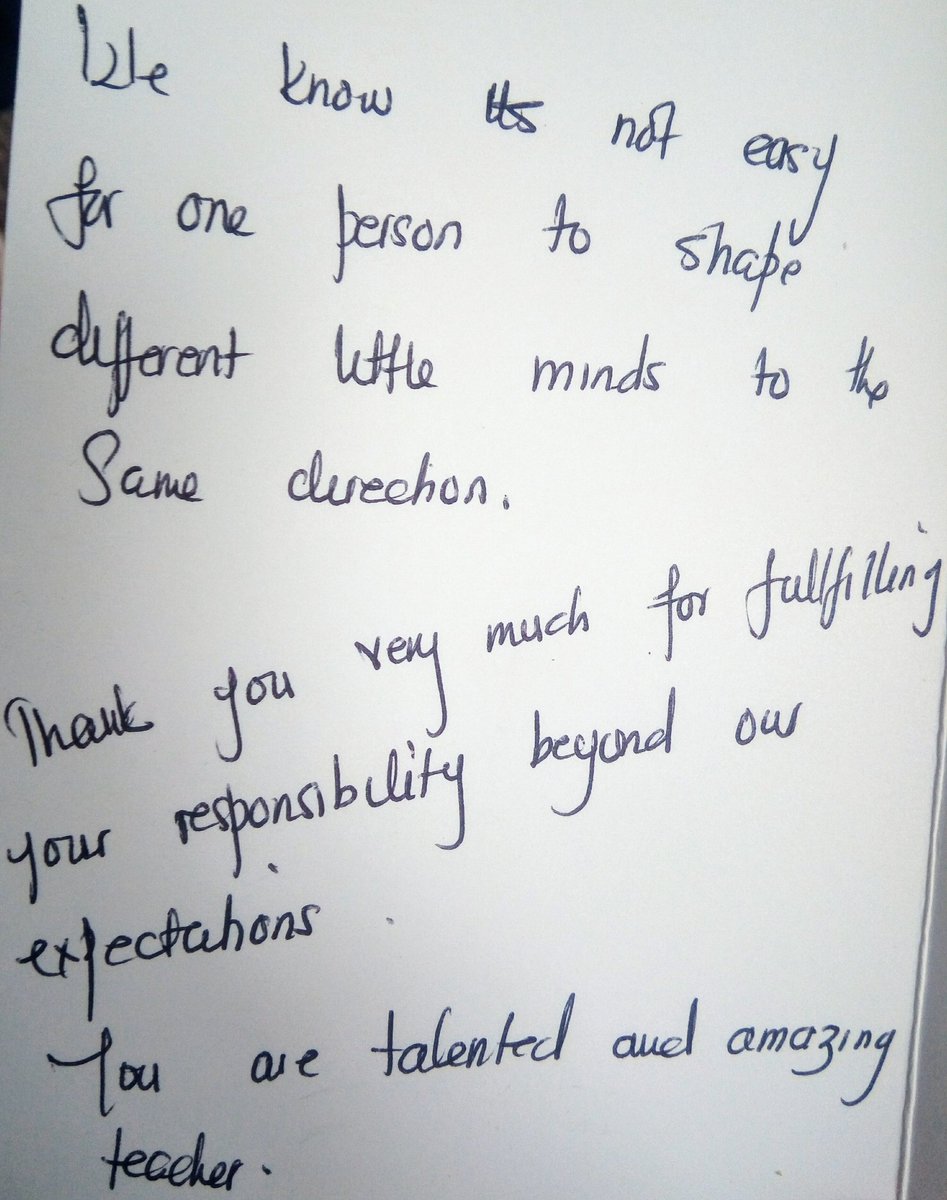 We know its not easy
for one person to shape
different little minds to the
Same direction.
Thank you very much for fullfilling
your responsibility beyond our
expectations.
You are talented and amazing
teacher.